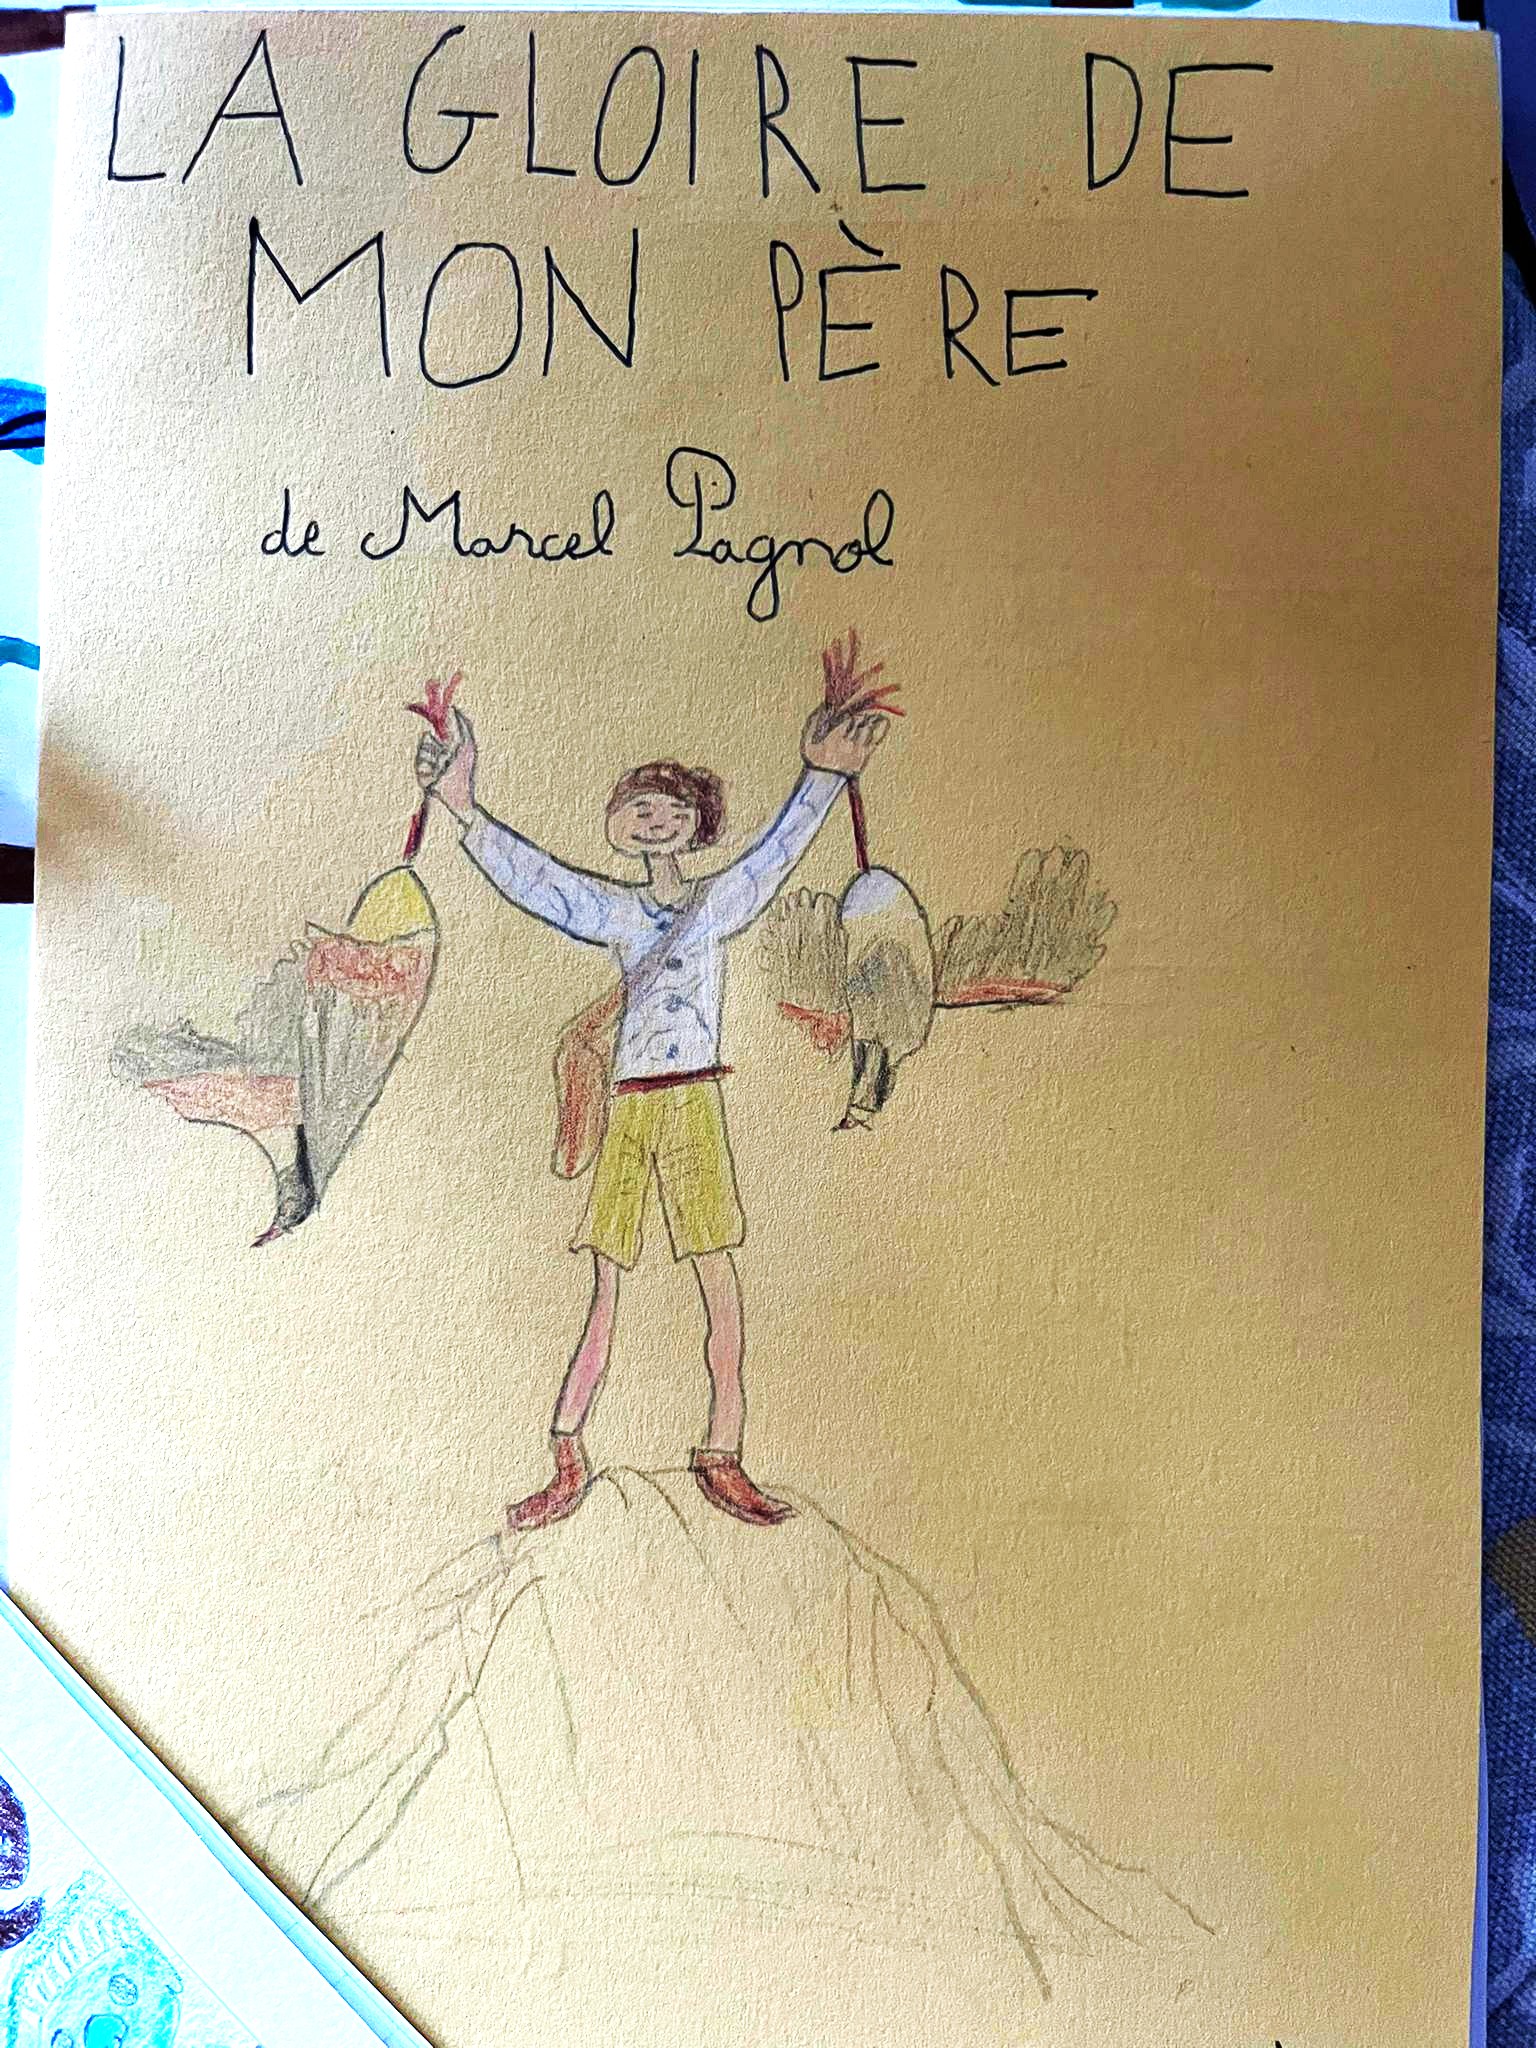 LA GLOIRE DE
MON PÈRE
de Marcel Pagnol